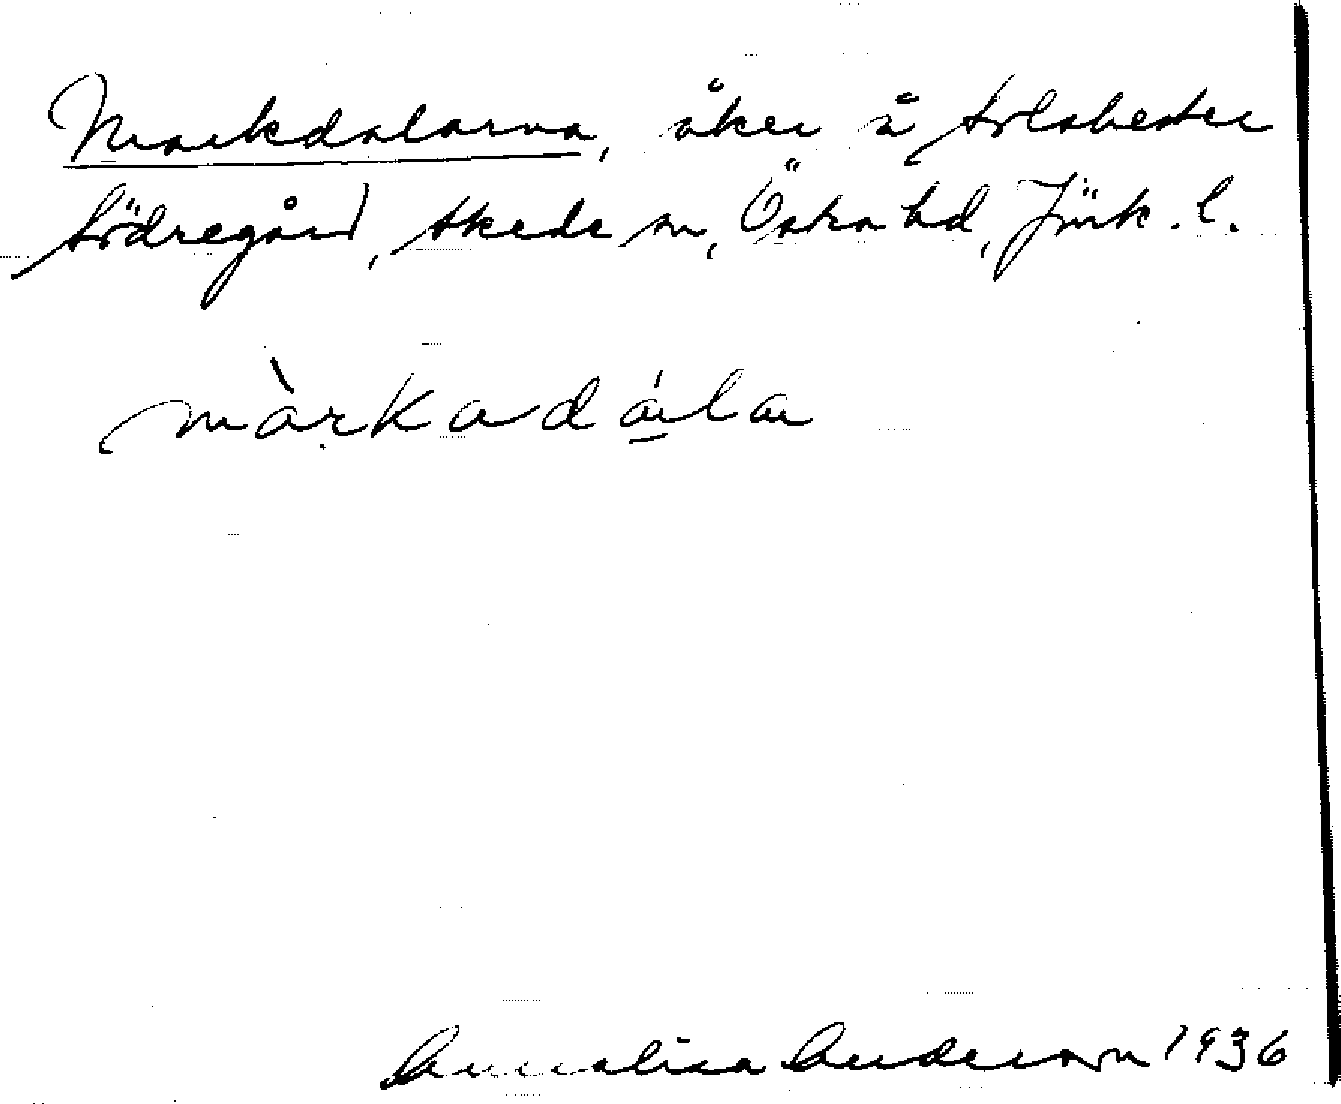 Markdalarna, åker å Solabester
Södregård, Skede sn, Östra hd, Jönk. l.
màrkadálar
Annalisa Anderson 1936